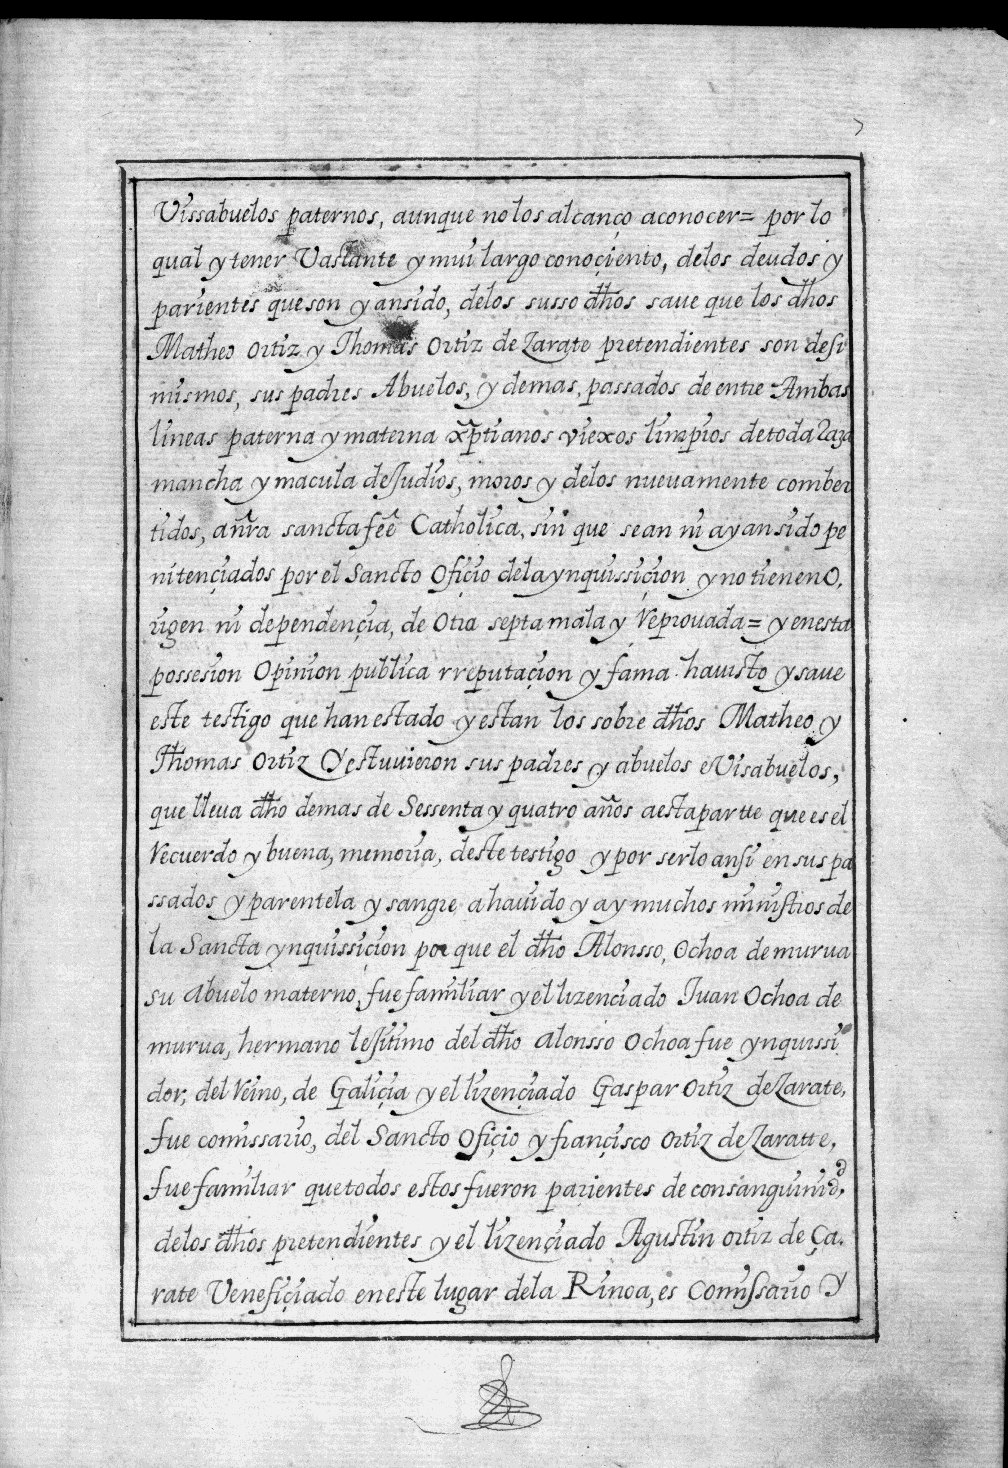 Vissabuelos paternos, aunque no los alcanço aconocer= por lo
qual y tener Vastante y mui largo conoçiento, delos deudos y
parientes que son y ansido, delos susso dħos saue que los dħos
Matheo Ortiz y Thomas Ortiz de Zarate pretendientes son desi
mismos, sus padres Abuelos, y demas, passados de entre Ambas
lineas paterna y materna xp̃tianos viexos limpios de toda Raza
mancha y macula de Judios, moros y delos nueuamente comber
tidos, a nr̃a sancta feê Catholica, sin que sean ni ayan sido pe
nitençiados por el Sancto Ofiçio dela ynquissiçion y no tienen O,
rigen ni dependençia, de Otra septa mala y Reprouada= y en esta
possesion Opinion publica rreputaçion y fama hauisto y saue
este testigo que han estado y estan los sobre dħos Matheo y
Thomas Ortiz Y estuuieron sus padres y abuelos e Visabuelos,
que lleua dħo demas de Sessenta y quatro años aesta partte que es el
Recuerdo y buena, memoria, deste testigo y por serlo ansi en sus pa
ssados y parentela y sangre a hauido y ay muchos ministros de
la Sancta ynquissiçion por que el dħo Alonsso, Ochoa de murua
su Abuelo materno, fue familiar y el lizenciado Juan Ochoa de
murua, hermano lesitimo del dħo Alonsso Ochoa fue ynquissi
dor, del Reino, de Galiçia y el lizençiado Gaspar Ortiz de Zarate,
fue comissario, del Sancto Ofiçio y françisco Ortiz de Zaratte,
fue familiar que todos estos fueron parientes de consanguinidᵈ,
delos dħos pretendientes y el lizençiado Agustin ortiz de Ça.
rate Venefiçiado en este lugar dela Rinoa, es Comissario y